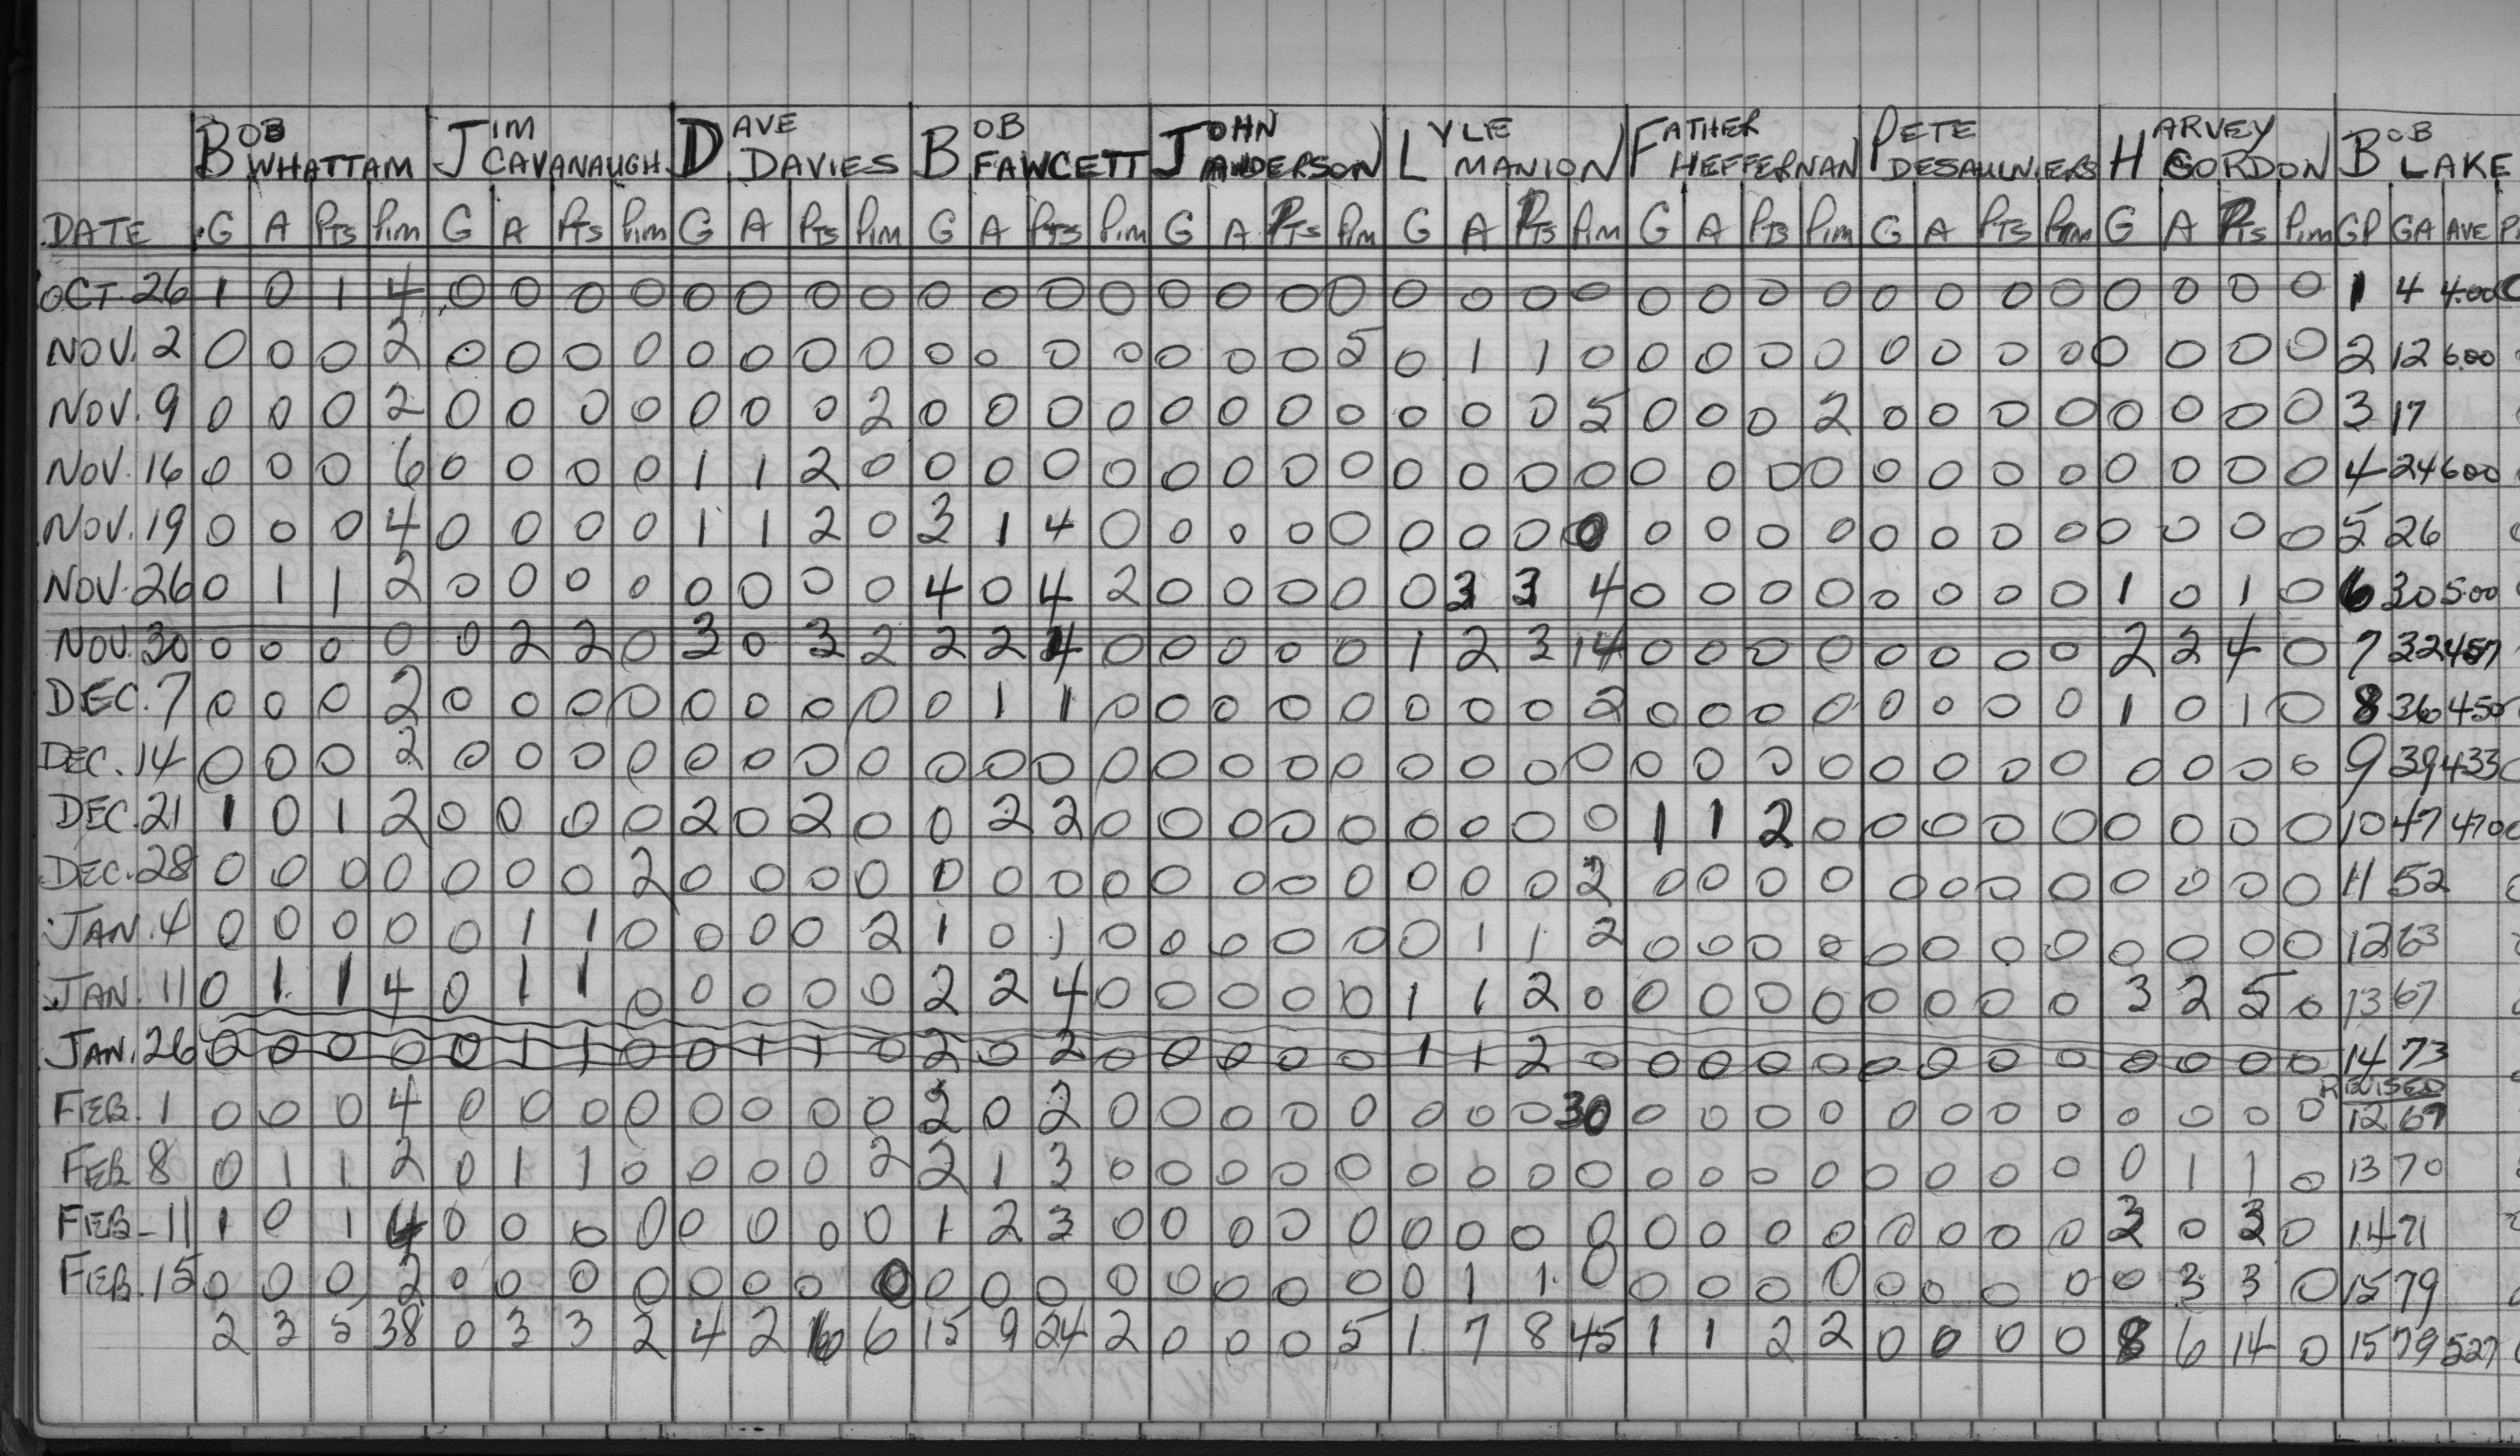 BOB WHATTAM JIM CAVANAUGH DAVE DAVIES BOB FAWCETT JOHN ANDERSON LYLE MANION FATHER HEFFERNAN PETE DESAULNIERS HARVEY GORDON BOB LAKE
DATE G A PTS Pim G A PTS Pim G A PTS PIM G A PTS Pim G A PTS Pim G A PTS Pim G A PTS Pim G A PTS Pim G A PTS Pim GP GA AVE
OCT. 26 1 0 1 4 0 0 0 0 0 0 0 0 0 0 0 0 0 0 0 0 0 0 0 0 0 0 0 0 0 0 0 0 0 0 0 0 1 4 4.00
NOV. 2 0 0 0 2 0 0 0 0 0 0 0 0 0 0 0 0 0 0 0 5 0 1 1 0 0 0 0 0 0 0 0 0 0 0 0 0 2 12 6.00
NOV. 9 0 0 0 2 0 0 0 0 0 0 0 2 0 0 0 0 0 0 0 0 0 0 0 5 0 0 0 2 0 0 0 0 0 0 0 0 3 17
NOV. 16 0 0 0 6 0 0 0 0 1 1 2 0 0 0 0 0 0 0 0 0 0 0 0 0 0 0 0 0 0 0 0 0 0 0 0 0 4 24 600
NOV. 19 0 0 0 4 0 0 0 0 1 1 2 0 3 1 4 0 0 0 0 0 0 0 0 0 0 0 0 0 0 0 0 0 0 0 0 0 5 26
NOV. 26 0 1 1 2 0 0 0 0 0 0 0 0 4 0 4 2 0 0 0 0 0 3 3 4 0 0 0 0 0 0 0 0 1 0 1 0 6 30 5.00
NOV. 30 0 0 0 0 0 2 2 0 3 0 3 2 2 2 4 0 0 0 0 0 1 2 3 14 0 0 0 0 0 0 0 0 2 2 4 0 7 32 457
DEC. 7 0 0 0 2 0 0 0 0 0 0 0 0 0 1 1 0 0 0 0 0 0 0 0 2 0 0 0 0 0 0 0 0 1 0 1 0 8 36 450
DEC. 14 0 0 0 2 0 0 0 0 0 0 0 0 0 0 0 0 0 0 0 0 0 0 0 0 0 0 0 0 0 0 0 0 0 0 0 0 9 39 433
DEC. 21 1 0 1 2 0 0 0 0 2 0 2 0 0 2 2 0 0 0 0 0 0 0 0 0 1 1 2 0 0 0 0 0 0 0 0 0 10 47 470
DEC. 28 0 0 0 0 0 0 0 2 0 0 0 0 0 0 0 0 0 0 0 0 0 0 0 2 0 0 0 0 0 0 0 0 0 0 0 0 11 52
JAN. 4 0 0 0 0 0 1 1 0 0 0 0 2 1 0 1 0 0 0 0 0 0 1 1 2 0 0 0 0 0 0 0 0 0 0 0 0 12 63
JAN. 11 0 1 1 4 0 1 1 0 0 0 0 0 2 2 4 0 0 0 0 0 1 1 2 0 0 0 0 0 0 0 0 0 3 2 5 0 13 67
JAN. 26 0 0 0 0 0 1 1 0 0 1 1 0 2 0 2 0 0 0 0 0 1 1 2 0 0 0 0 0 0 0 0 0 0 0 0 0 14 73
REVISED
FEB. 1 0 0 0 4 0 0 0 0 0 0 0 0 2 0 2 0 0 0 0 0 0 0 0 30 0 0 0 0 0 0 0 0 0 0 0 0 12 67
FEB 8 0 1 1 2 0 1 1 0 0 0 0 2 2 1 3 0 0 0 0 0 0 0 0 0 0 0 0 0 0 0 0 0 0 1 1 0 13 70
FEB - 11 1 0 1 4 0 0 0 0 0 0 0 0 1 2 3 0 0 0 0 0 0 0 0 0 0 0 0 0 0 0 0 0 3 0 3 0 14 71
FEB. 15 0 0 0 2 0 0 0 0 0 0 0 0 0 0 0 0 0 0 0 0 0 1 1 0 0 0 0 0 0 0 0 0 0 3 3 0 15 79
2 3 5 38 0 3 3 2 4 2 6 6 15 9 24 2 0 0 0 5 1 7 8 45 1 1 2 2 0 0 0 0 8 6 14 0 15 79 527